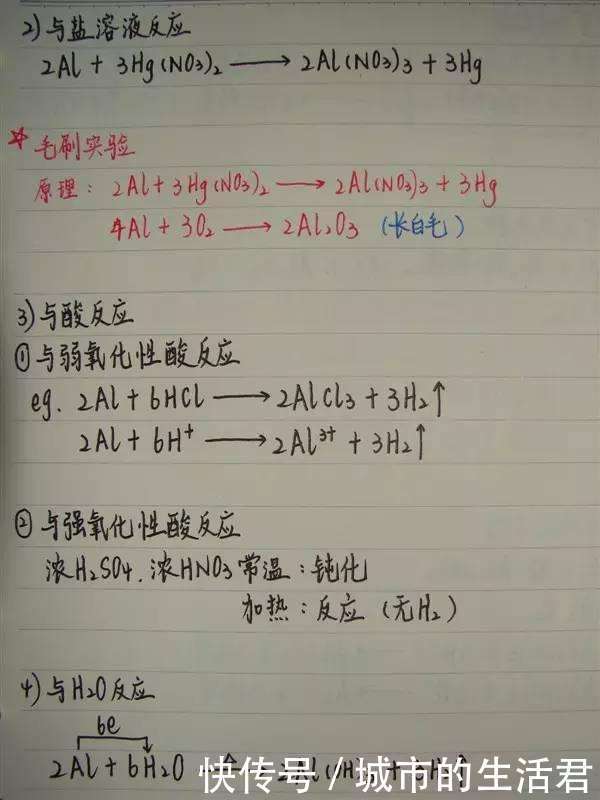 2)与盐溶液反应
2Al + 3Hg(NO3)2 ⟶ 2Al(NO3)3 + 3Hg
☆毛刷实验
原理: 2Al + 3Hg(NO3)2 ⟶ 2Al(NO3)3 + 3Hg
4Al + 3O2 ⟶ 2Al2O3 (长白毛)
3)与酸反应
①与弱氧化性酸反应
eg. 2Al + 6HCl ⟶ 2AlCl3 + 3H2↑
2Al + 6H⁺ ⟶ 2Al³⁺ + 3H2↑
②与强氧化性酸反应
浓H2SO4. 浓HNO3 常温:钝化
加热:反应(无H2)
4)与H2O反应
6e
2Al + 6H2O
快传号/城市的生活君